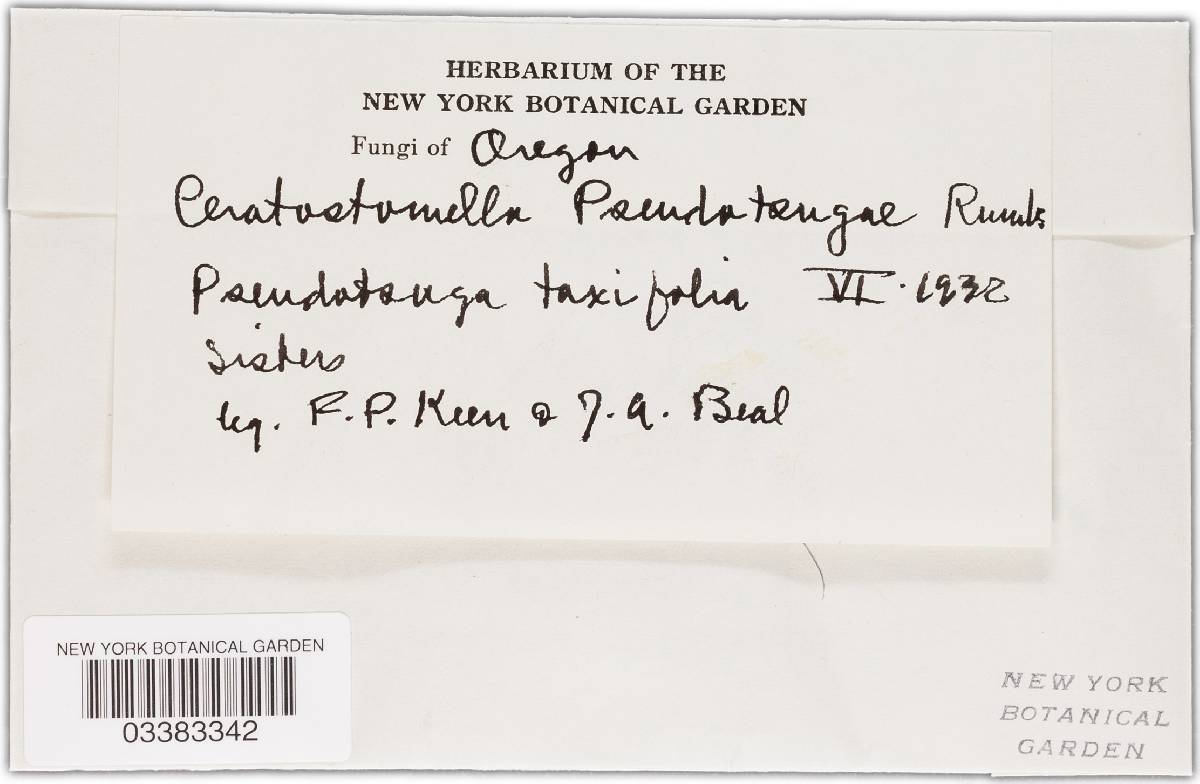 HERBARIUM OF THE
NEW YORK BOTANICAL GARDEN
Fungi of Oregon
Ceratostomella Pseudotsugae Rumb.
Pseudotsuga taxifolia VI. 1932
Sisters
leg. F. P. Keen & J. A. Beal
NEW YORK BOTANICAL GARDEN
03383342
NEW YORK
BOTANICAL
GARDEN